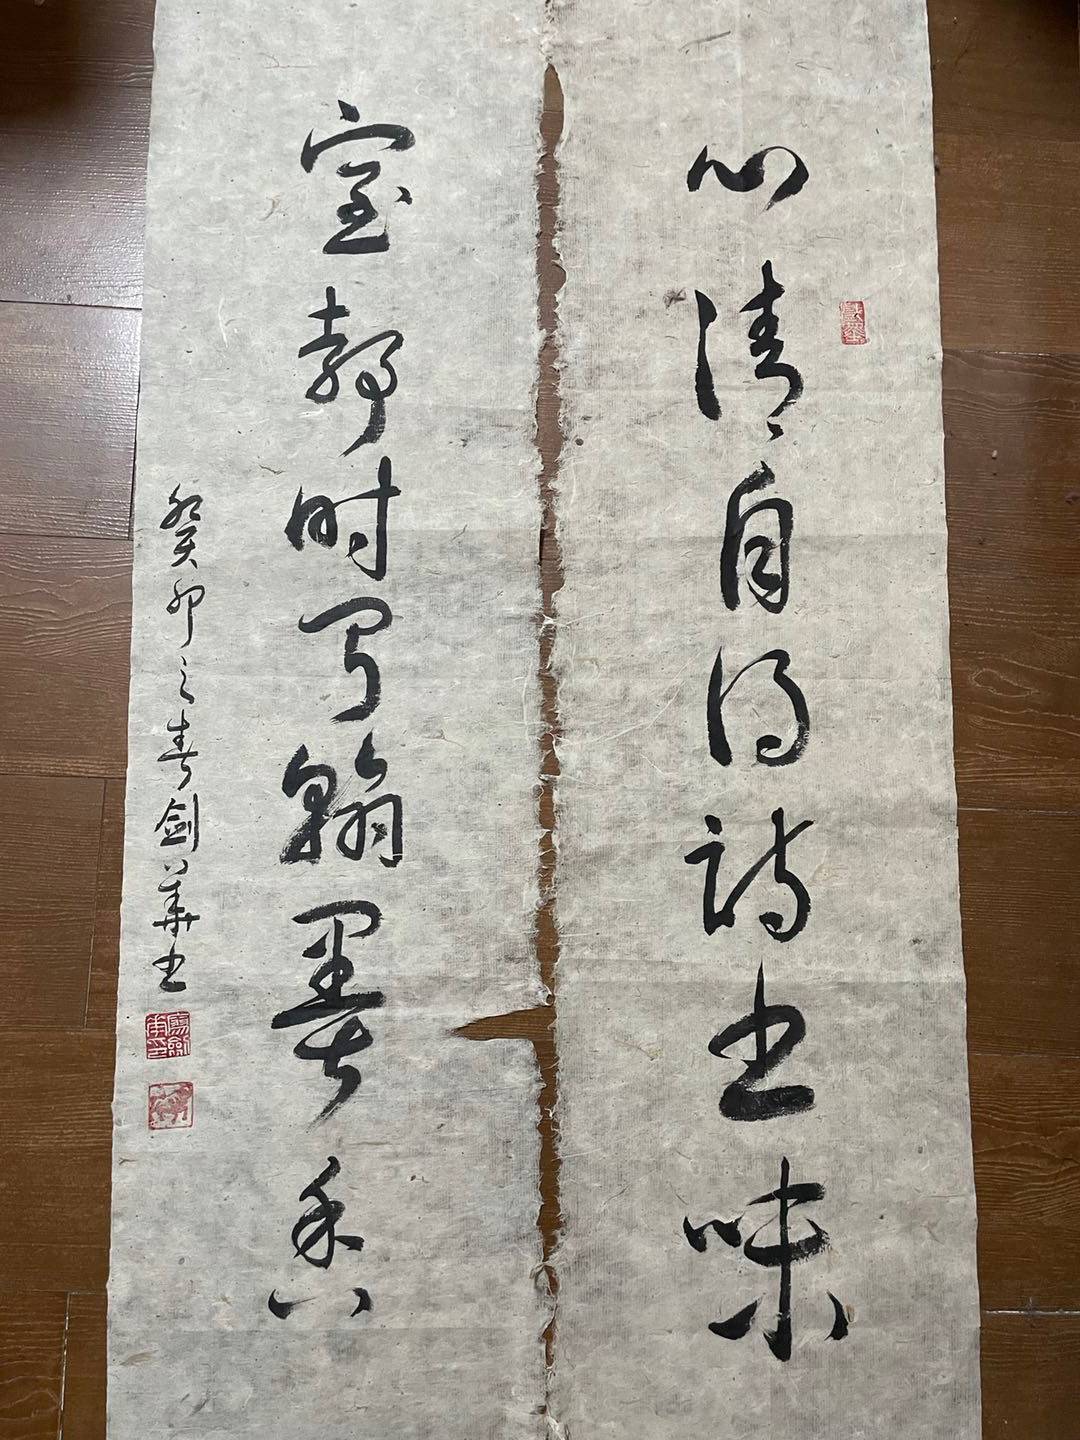 心清自得诗书味
室静时闻翰墨香
癸卯之春剑華书